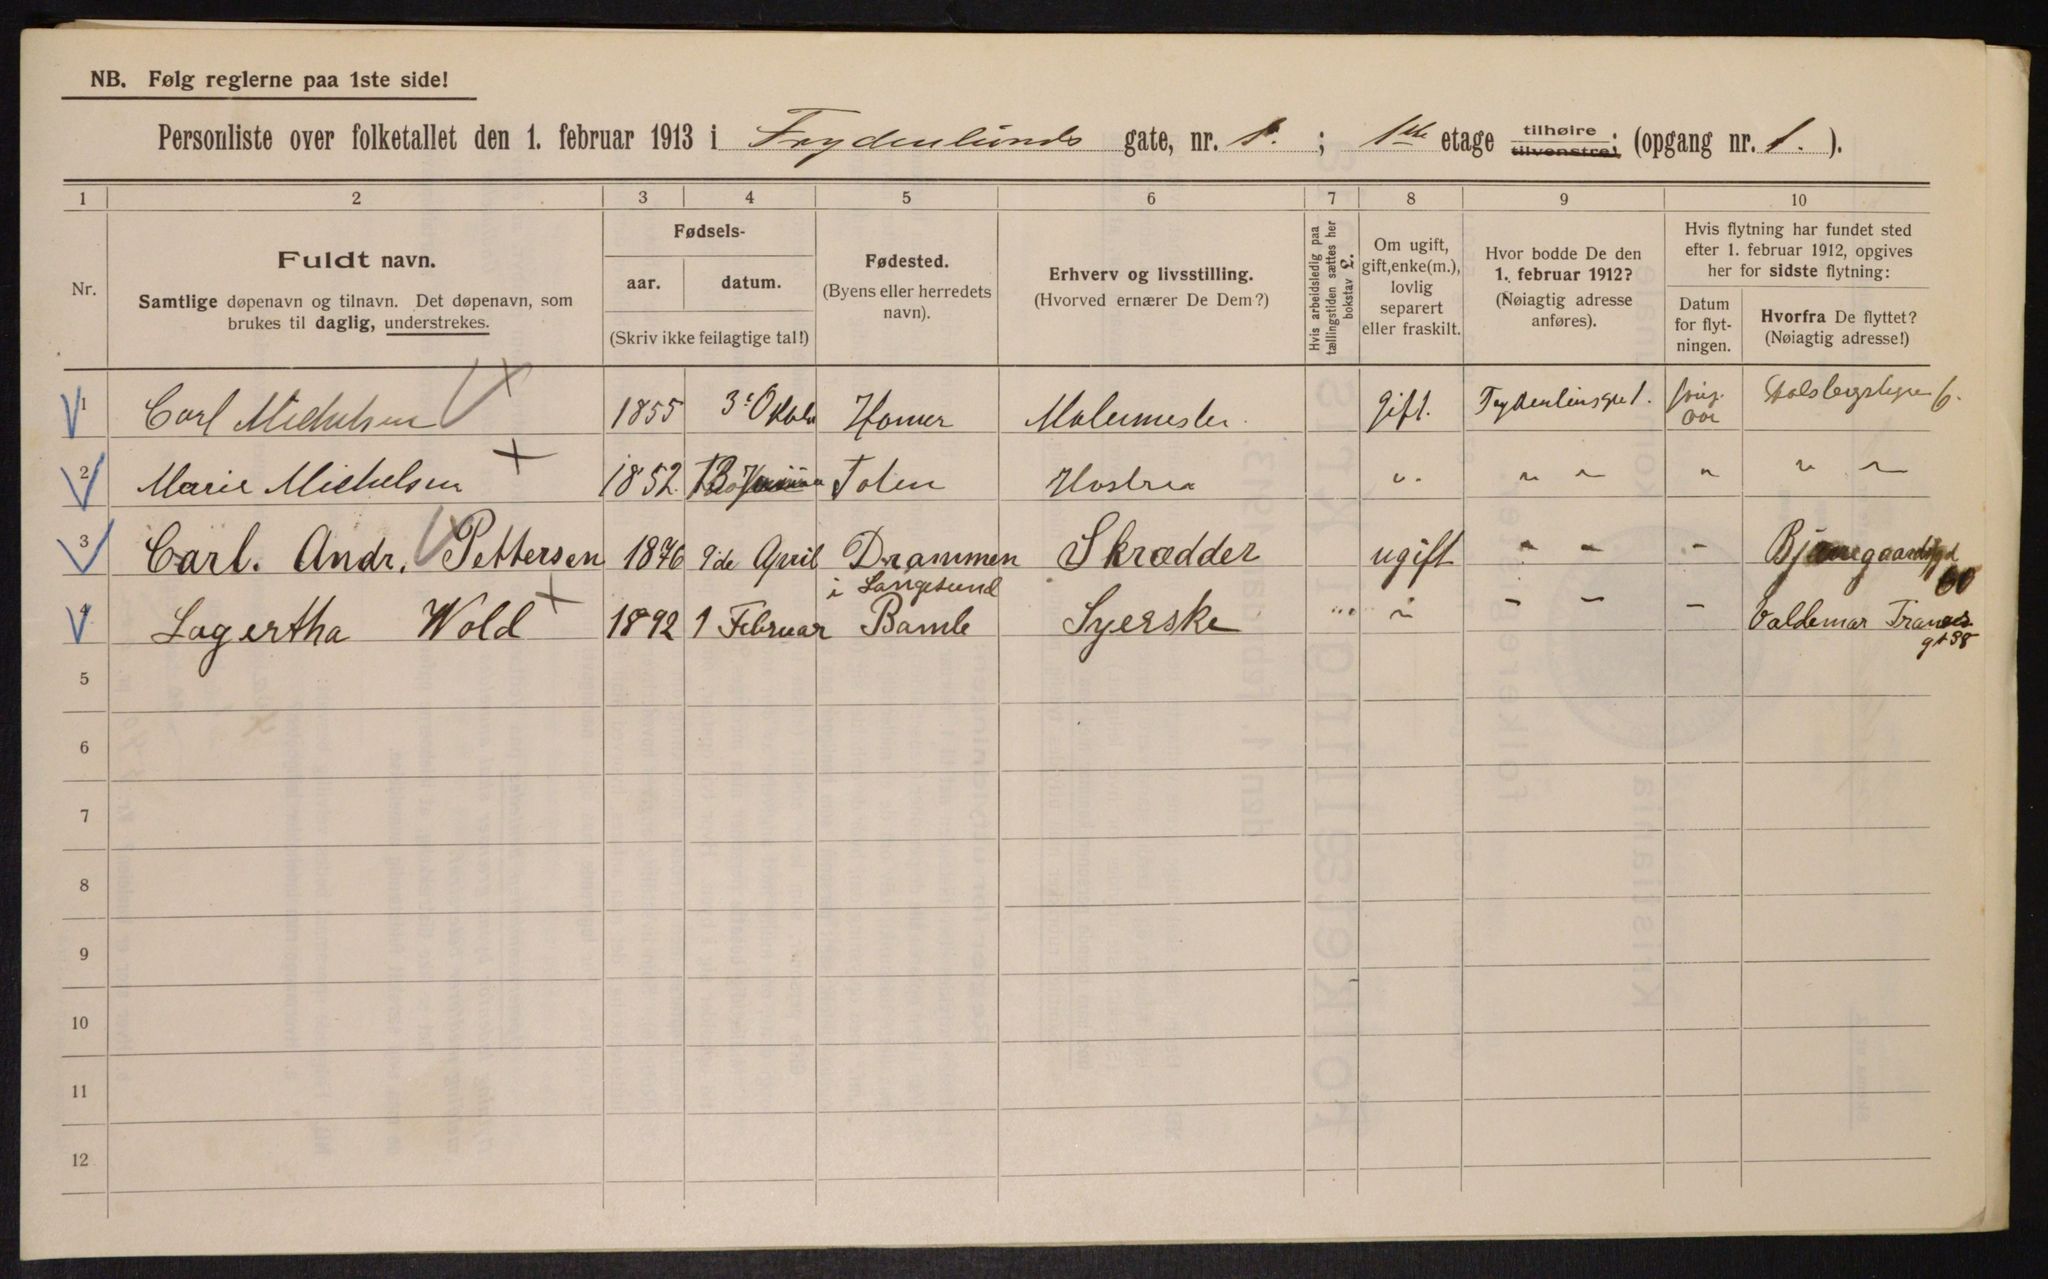 NB. Følg reglerne paa 1ste side!
Personliste over folketallet den 1. februar 1913 i Frydenlunds gate, nr. 1. ; 1ste etage tilhøire tilvenstre; (opgang nr. 1. ).
1 2 3 4 5 6 7 8 9 10
Nr.
Fuldt navn.
Samtlige døpenavn og tilnavn. Det døpenavn, som
brukes til daglig, understrekes.
Fødsels-
aar. datum.
(Skriv ikke feilagtige tal!)
Fødested.
(Byens eller herredets
navn).
Erhverv og livsstilling.
(Hvorved ernærer De Dem?)
Hvis arbeidsledig paa
tællingstiden sættes her
bokstav L.
Om ugift,
gift, enke(m.),
lovlig
separert
eller fraskilt.
Hvor bodde De den
1. februar 1912?
(Nøiagtig adresse
anføres).
Hvis flytning har fundet sted
efter 1. februar 1912, opgives
her for sidste flytning:
Datum
for flyt-
ningen.
Hvorfra De flyttet?
(Nøiagtig adresse!)
1 Carl Michelsen 1855 Malermester gift. 6.
2 Marie Michelsen 1852 Toten Hustru " " " " " "
3 Carl. Andr. Pettersen 1876 9de April Drammen Skrædder ugift " " "
60
i Langesund
4 Lagertha Wold 1892 1 Februar Bamle Syerske " " " " Valdemar Tranes
gt 38
5
6
7
8
9
10
11
12